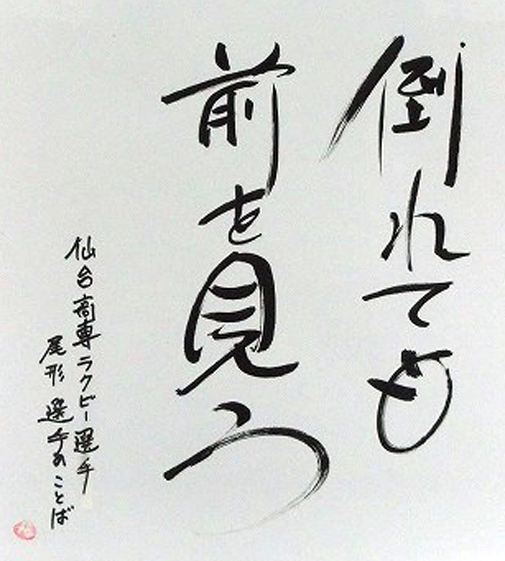 倒れても
前を見ろ
仙台高専ラクビー選手
尾形選手のことば